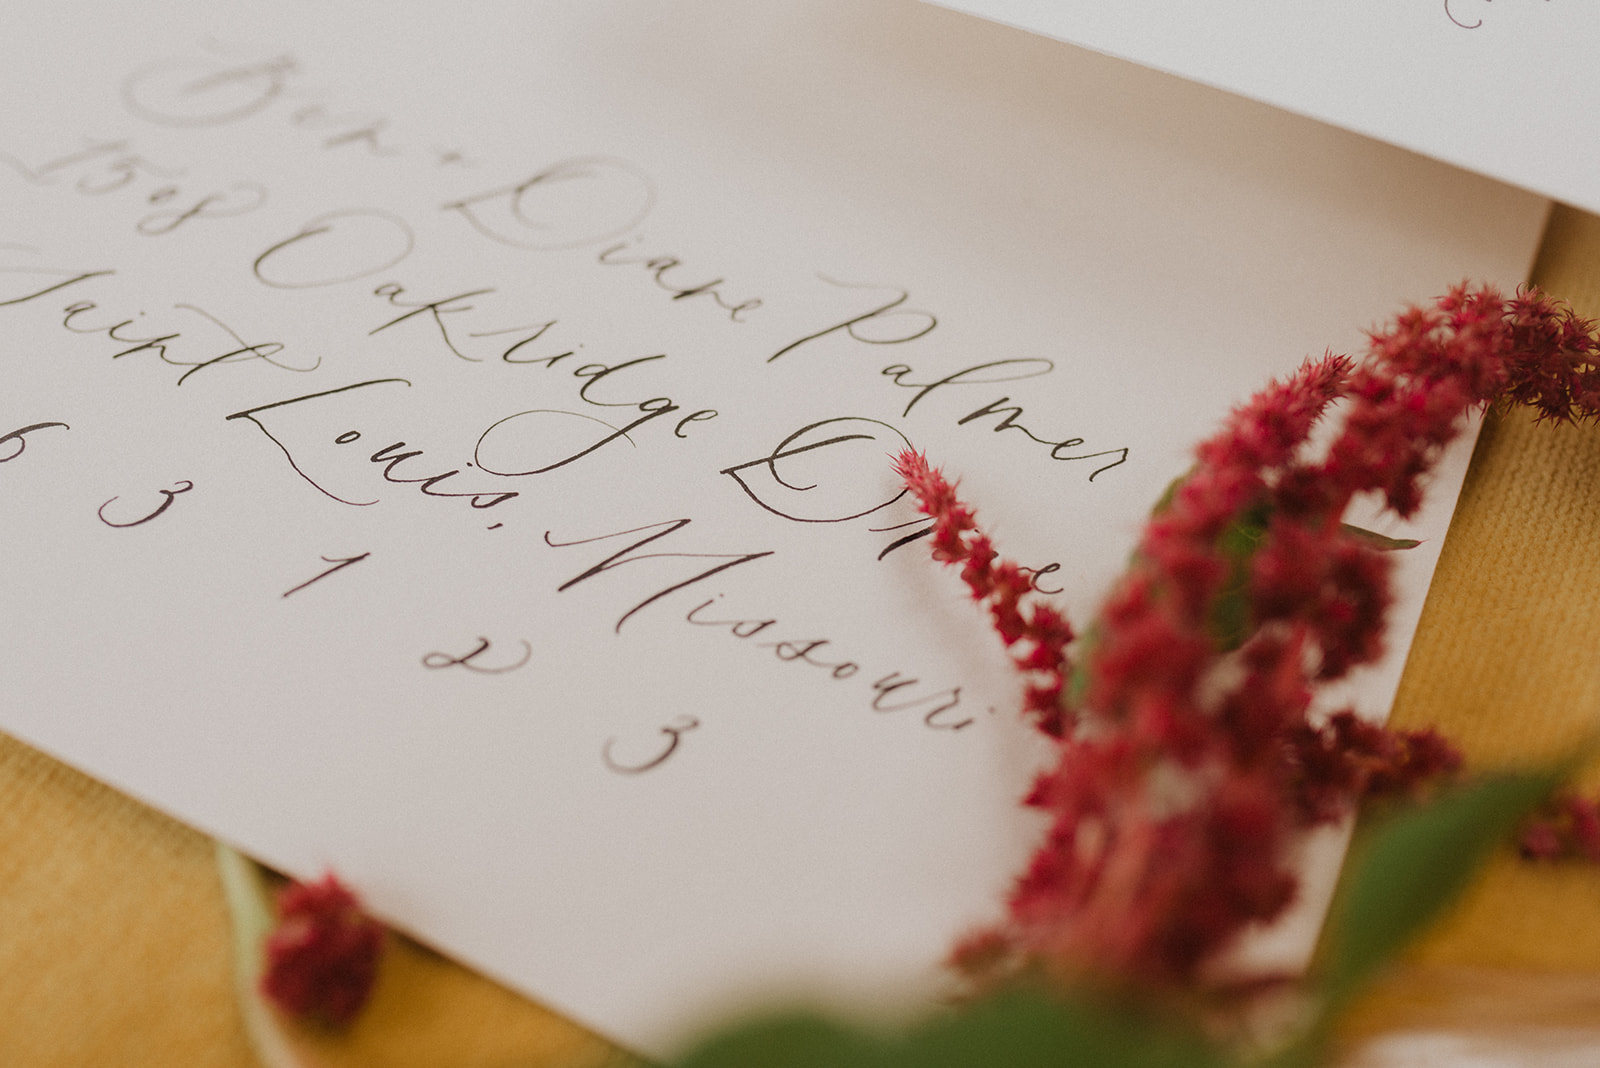 Ben + Diane Palmer
1508 Oakridge Drive
Saint Louis, Missouri
63123